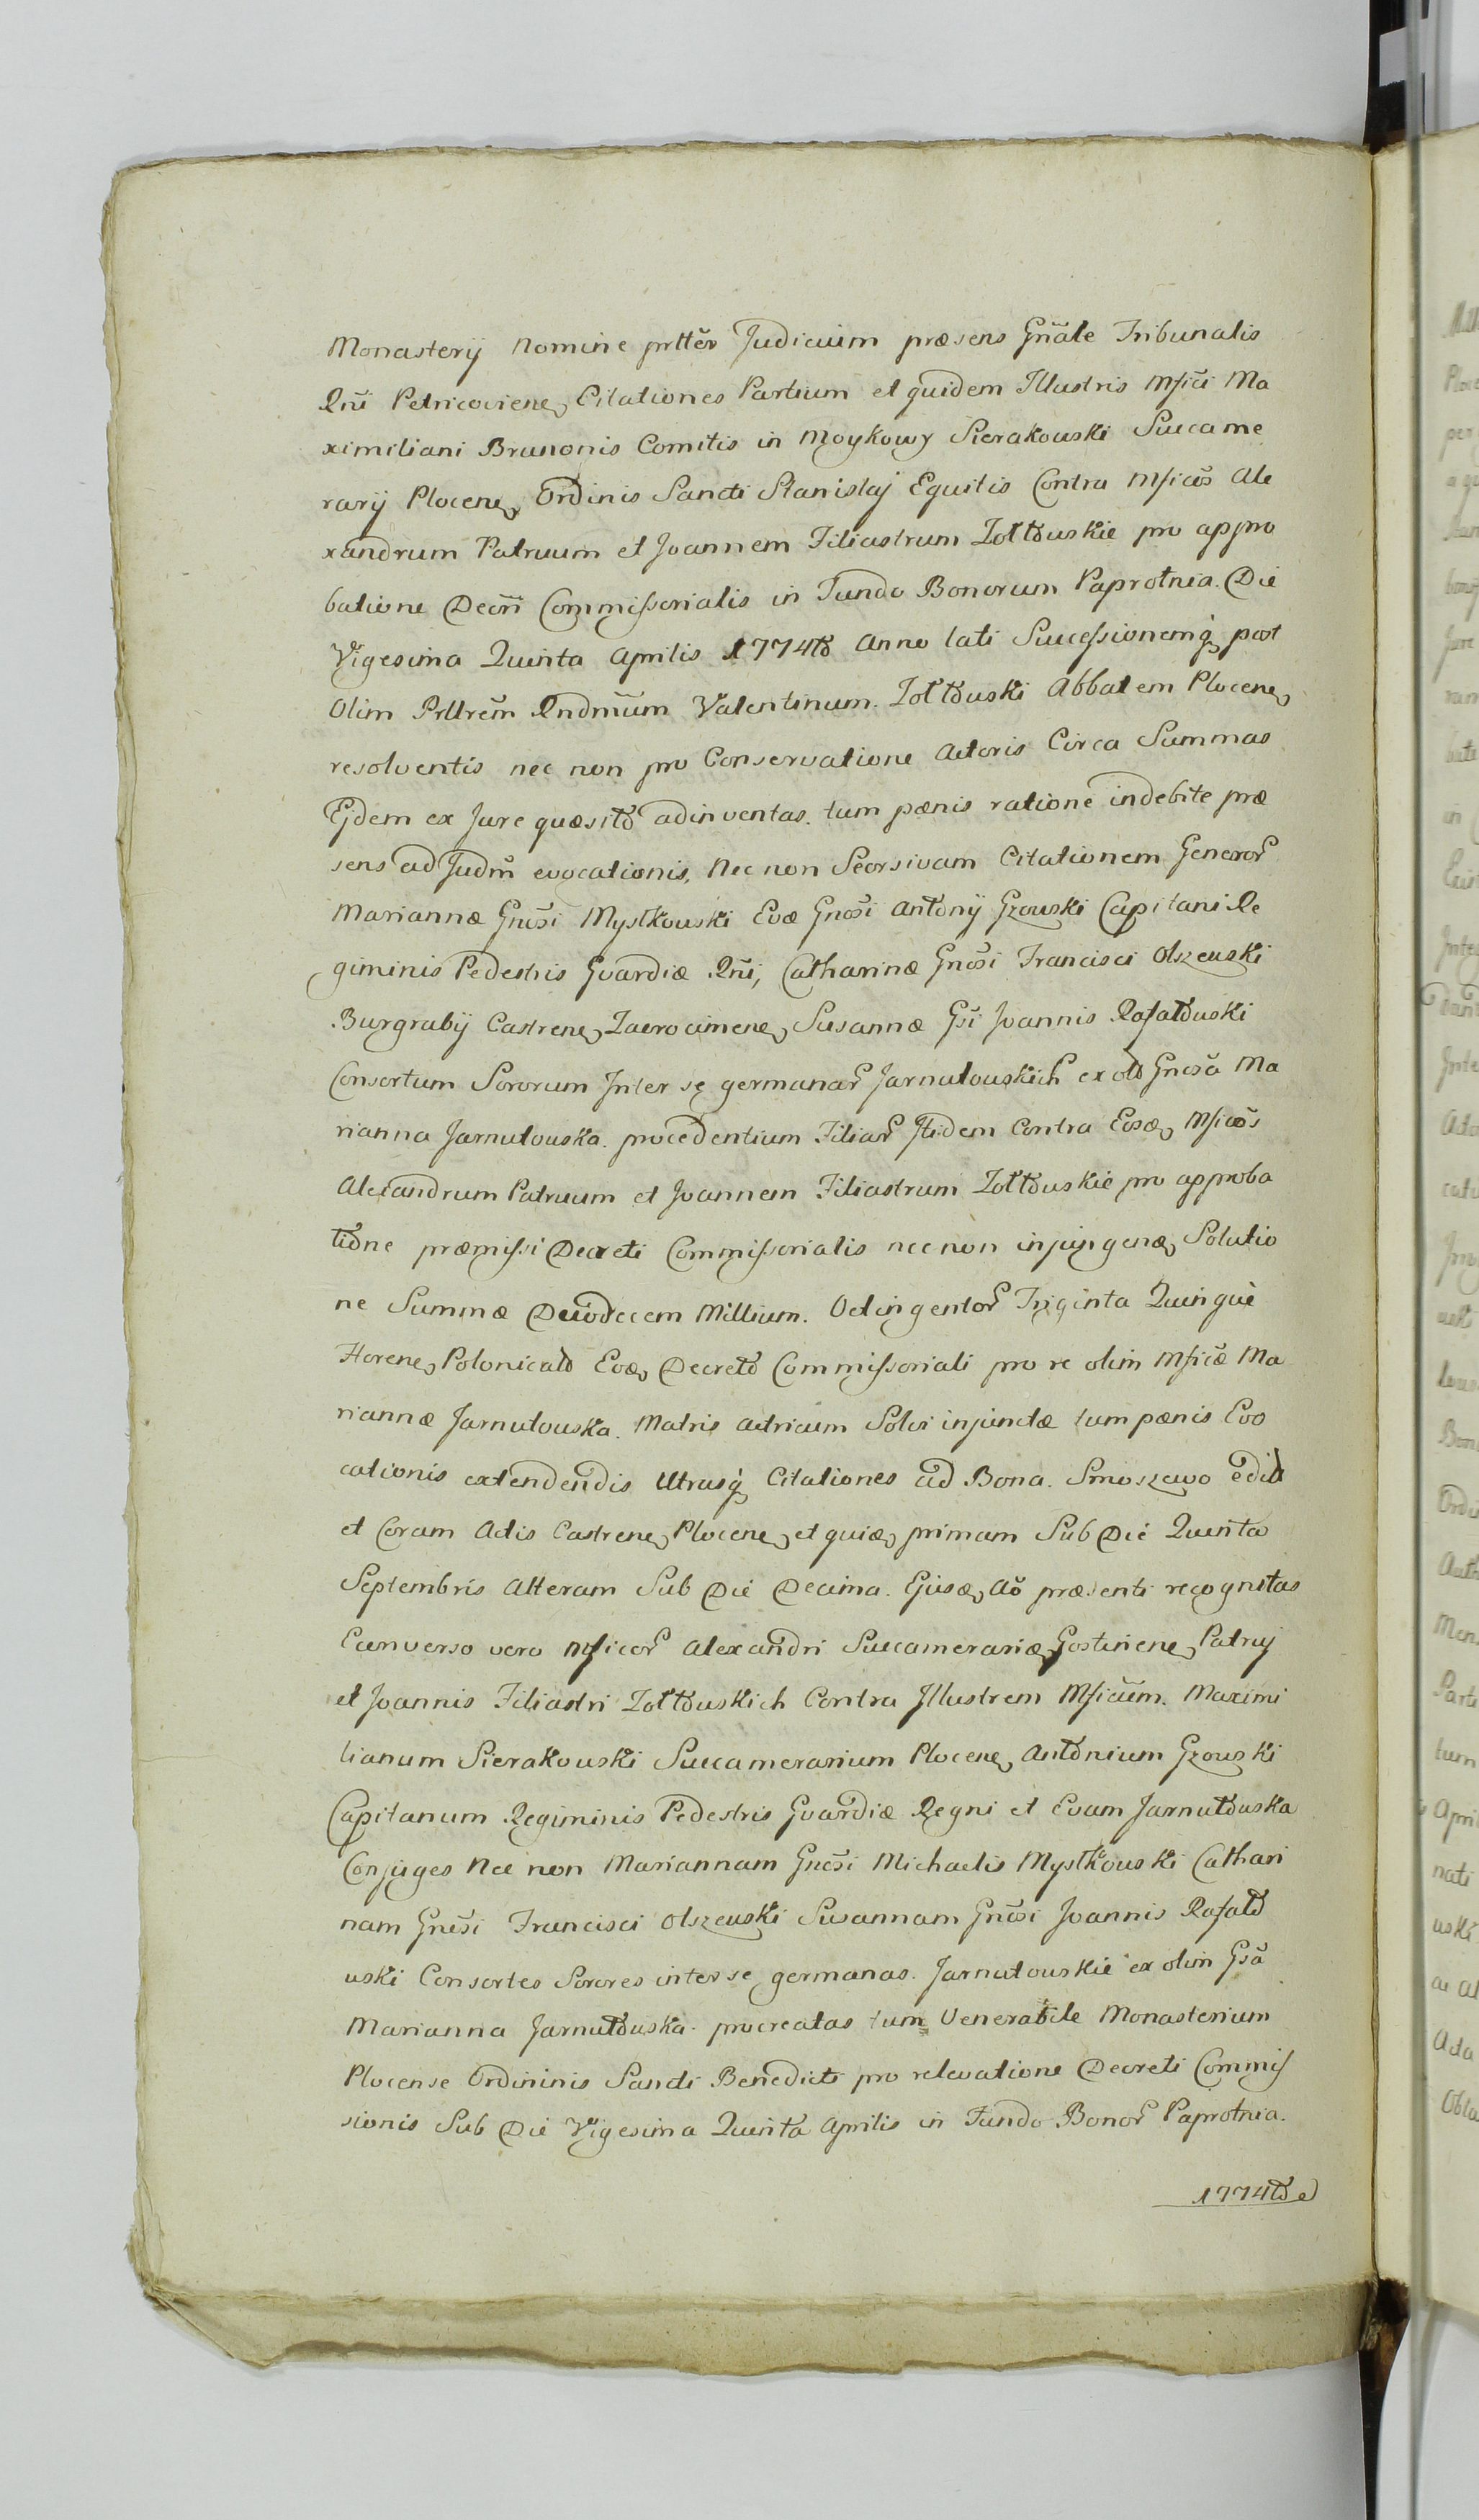 Monasterij Nomine prttẽr Judicium præsens Gñale Tribunalis
Rñi Petricoviens, Citationes Partium et quidem Illustris Mfici Ma
ximiliani Brunonis Comitis in Moykowy Sierakowski Succame
rarij Plocens, Ordinis Sancti Stanislaj Equitis Contra Mficos Ale
xandrum Patruum et Joannem Filiastrum Żołtowskie pro appro
batione Decri Commissorialis in Fundo Bonorum Paprotnia. Die
Vigesima Quinta Aprilis 1774to Anno lati Successionemq₃ post
Olim Prttrem Rndmum Valentinum. Żołtowski Abbatem Plocens,
resolventis nec non pro Conservatione Actoris Circa Summas
Ejdem ex Jure quæsito adinventas. tum pænis ratione indebite præ
sens ad Judm̃ evocationis, Nec non Seorsivam Citationem Generor
Mariannæ Gnosi Mystkowski Evæ Gnosi Antonij Gzowski Capitani Re
giminis Pedestris Gvardiæ Rñi, Catharinæ Gnosi Francisci Olszewski
Burgrabij Castrens, Zacrocimens, Susannæ Gsi Joannis Rafatowski
Consortum Sororum Inter se germanar Jarnutowskich ex olo Gnosa Ma
rianna Jarnutowska. procedentium Filiar Itidem Contra Eosd, Mficos
Alexandrum Patruum et Joannem Filiastrum Żołtowskie pro approba
tione præmissi Decreti Commissorialis nec non injungend, Solutio
ne Summæ Duodecem Millium. Octingentor Triginta Quinque
Florens, Polonicalo Eod, Decreto Commissoriali pro re olim Mficæ Ma
riannæ Jarnutowska. Matris Actricum Solvi injunctæ tum pænis Evo
cationis extendendis Utrasq₃ Citationes ad Bona. Smoszewo edit
et Coram Actis Castrens, Plocens, et quid, primam Sub Die Quinta
Septembris Alteram Sub Die Decima. Ejusd, Ao præsenti recognitas
Econverso vero Mficor Alexandri Succamerarid, Gostinens, Patruj
et Joannis Filiastri Żołtowskich Contra Illustrem Mficum. Maximi
lianum Sierakowski Succamerarium Plocens, Antonium Gzowski
Capitanum Regiminis Pedestris Gvardiæ Regni et Evam Jarnutowska
Conjuges Nec non Mariannam Gnosi Michaelis Mystkowski Cathari
nam Gnosi Francisci Olszewski Susannam Gnosi Joannis Rafato
wski Consortes Sorores inter se germanas. Jarnutowskie ex olim Gsa
Marianna Jarnutowska. procreatas tum Venerabile Monasterium
Plocense Ordininis Sancti Benedicti pro relevatione Decreti Commis
sionis Sub Die Vigesima Quinta Aprilis in Fundo Bonor Paprotnia.
1774to